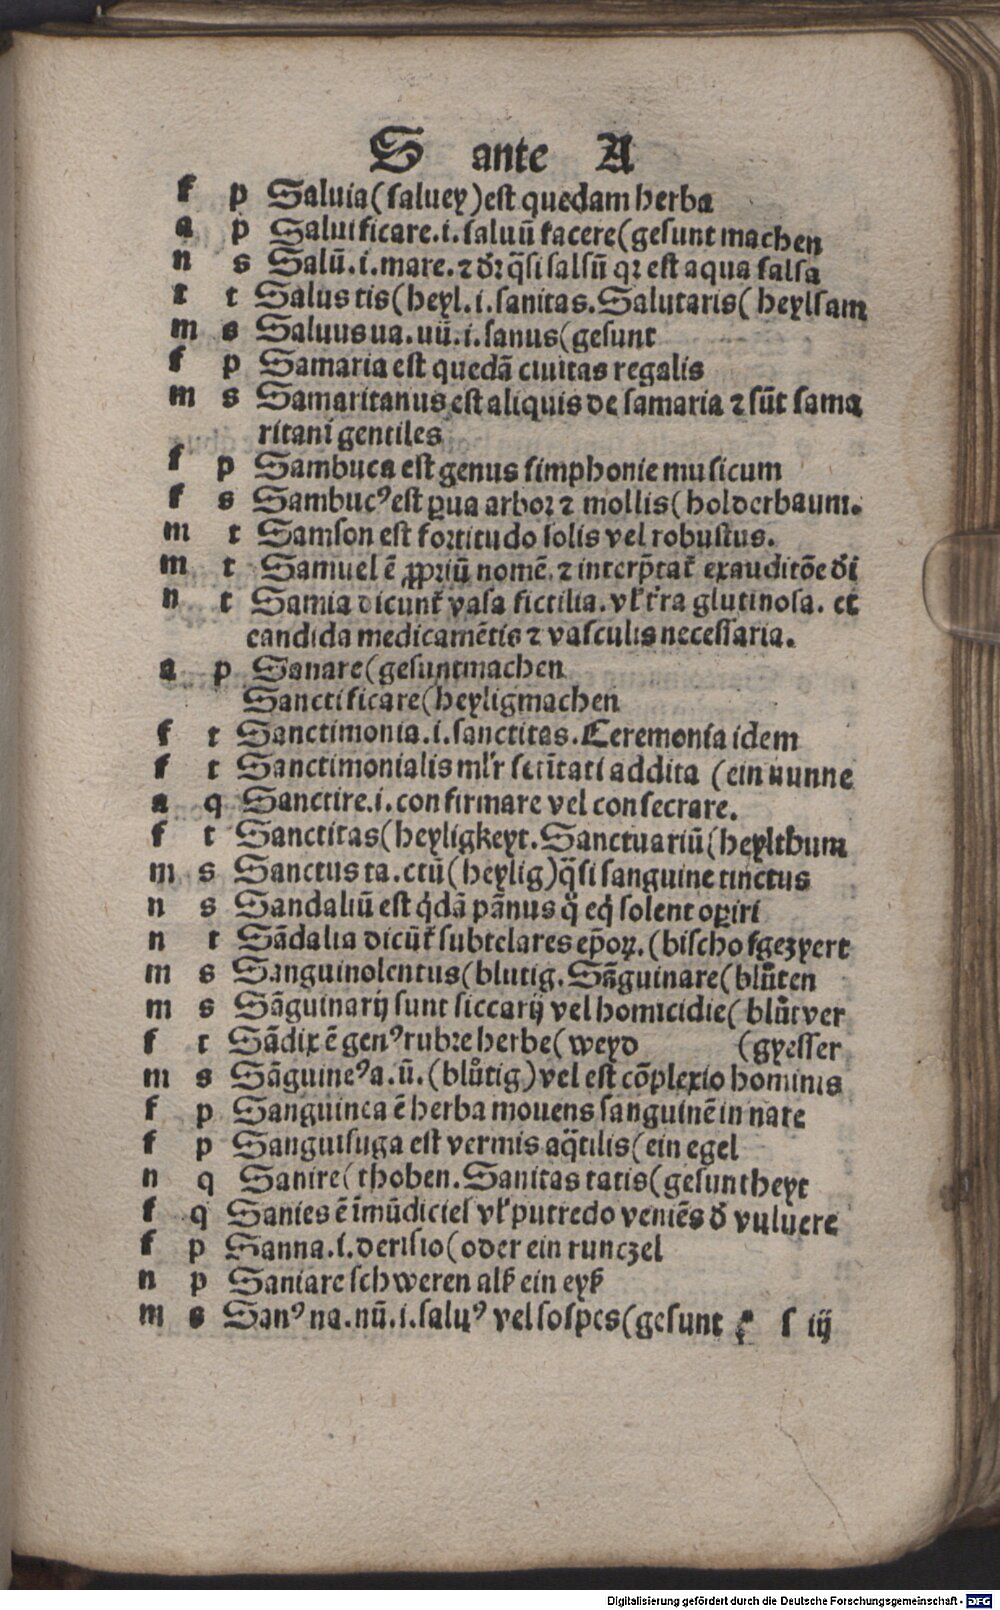 S ante A
f p Saluia (saluey) est quedam herba
a p Saluificare .i. saluū facere (gesunt machen
n s Salū .i. mare. ⁊ dr̄ q̄si salsū qꝛ est aqua salsa
f t Salus tis (heyl .i. sanitas. Salutaris (heylsam
m s Saluus ua. uū .i. sanus (gesunt
f p Samaria est quedā ciuitas regalis
m s Samaritanus est aliquis de samaria ⁊ sūt sama
ritani gentiles
f p Sambuca est genus simphonie musicum
f s Sambucꝰ est ꝑua arbor ⁊ mollis (holderbaum.
m t Samson est fortitudo solis vel robustus.
m t Samuel ē ꝓpriū nomē. ⁊ interp̄tat᷑ exauditōe di
n t Samia dicunt᷑ vasa fictilia. vl̓ t̓ra glutinosa. et
candida medicamētis ⁊ vasculis necessaria.
a p Sanare (gesuntmachen
Sanctificare (heyligmachen
f t Sanctimonia .i. sanctitas. Ceremonia idem
f t Sanctimonialis ml̓r addita (ein nunne
a q Sanctire .i. confirmare vel consecrare.
f t Sanctitas (heyligkeyt. Sanctuariū (heylthum
m s Sanctus ta. ctū (heylig) q̄si sanguine tinctus
n s Sandaliū est q̇dā pānus solent oꝑiri
n t Sādalia dicūt᷑ subtelares ep̄oꝝ. (bischofgezyert
m s Sanguinolentus (blutig. Sāguinare (blůten
m s Sāguinarij sunt siccarij vel homicidie (blůtver
f t Sādix ē genꝰ rubre herbe (weyd (gyesser
m s Sāguineꝰ a. ū. (blůtig) vel est cōplexio hominis
f p Sanguinea ē herba mouens sanguinē in nare
f p Sanguisuga est vermis aq̄tilis (ein egel
n q Sanire (thoben. Sanitas tatis (gesuntheyt
f q Sanies ē īmūdicies vl̓ putredo veniēs d̓ vulnere
f p Sanna .i. derisio (oder ein runczel
n p Saniare schweren alß ein eyß
m s Sanꝰ na. nū .i. saluꝰ vel sospes (gesunt s iij
Digitalisierung gefördert durch die Deutsche Forschungsgemeinschaft - DFG